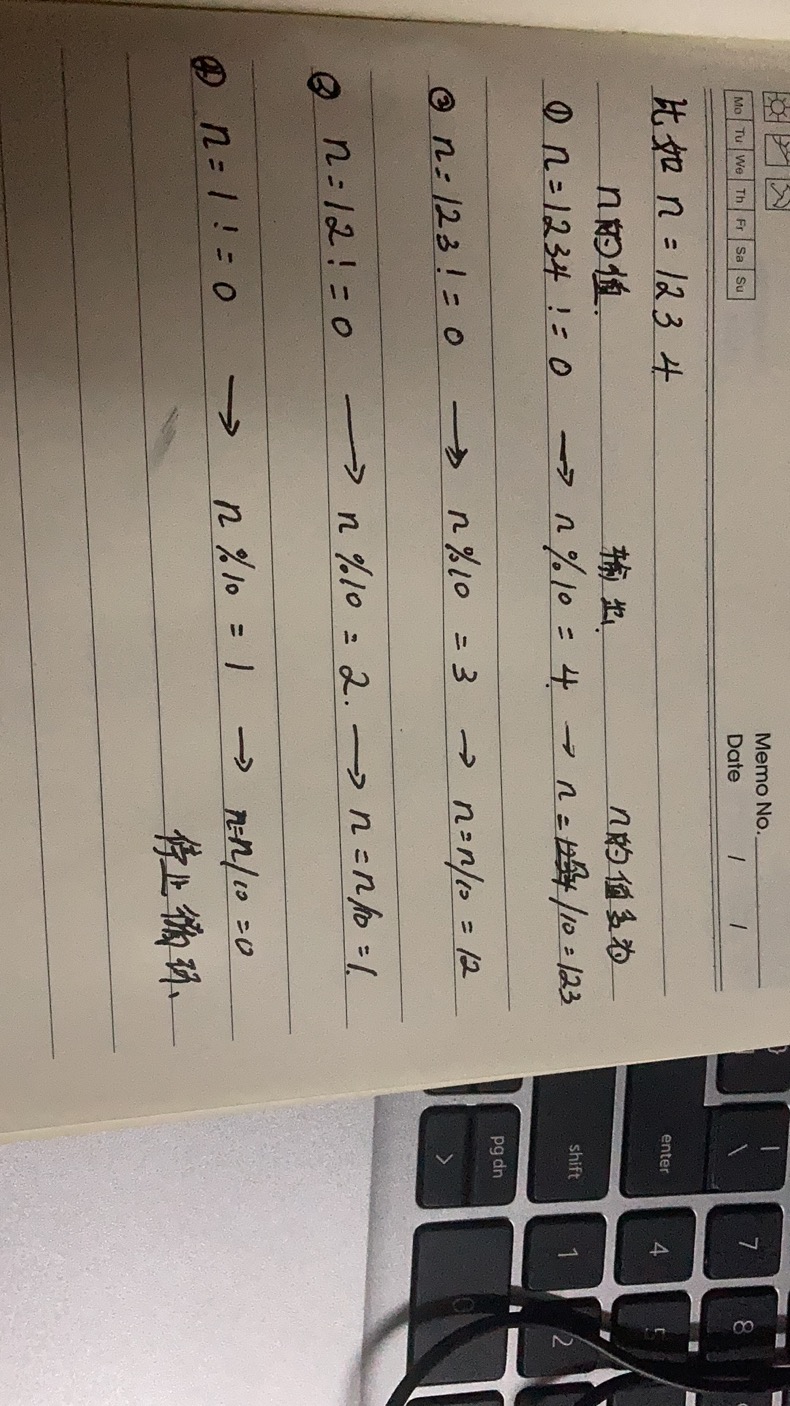 Memo No.
Mo Tu We Th Fr Sa Su
Date / /
比如 n=1234
n的值. 输出. n的值变为
① n=1234!=0 → n%10=4 → n=1234/10=123
③ n=123!=0 → n%10=3 → n=n/10=12
② n=12!=0 → n%10=2. → n=n/10=1.
④ n=1!=0 → n%10=1 → n=n/10=0
停止循环、
\
7
8
enter
4
5
shift
1
2
pg dn
>
0